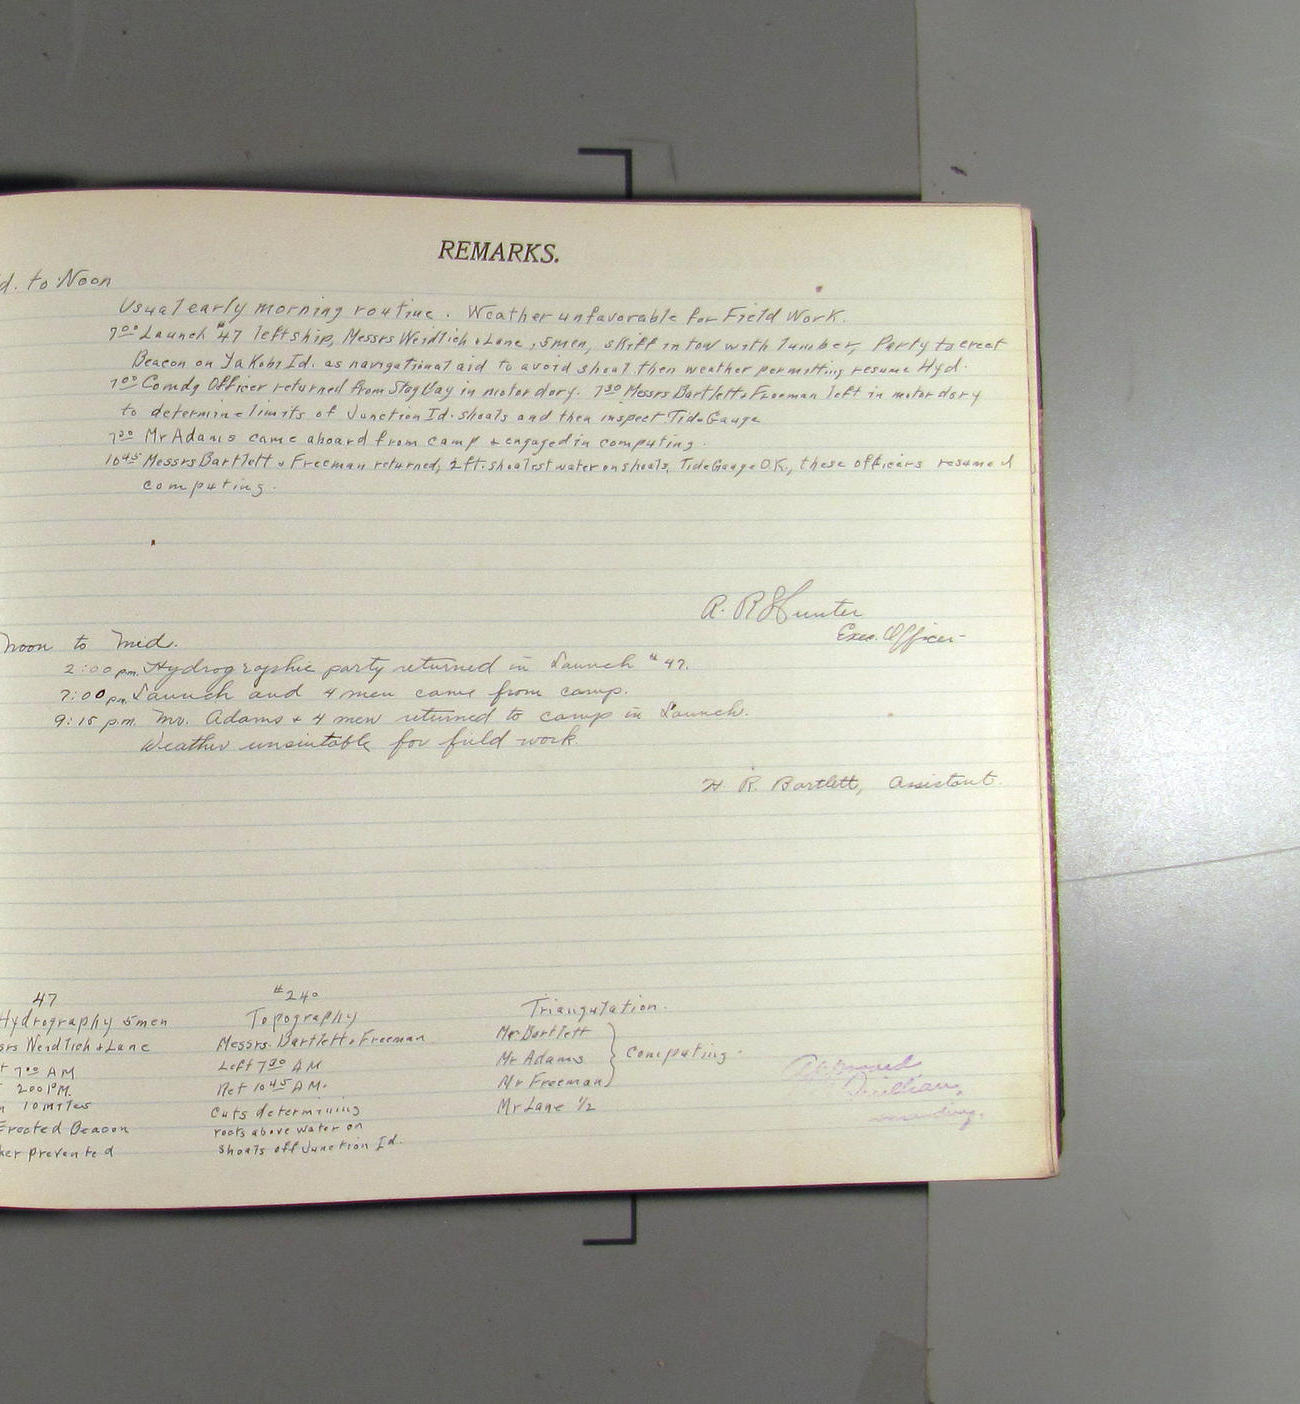 REMARKS.
d. to Noon
Usual early morning routine. Weather unfavorable for Field Work.
7 00 Launch #47 left ship, Messrs Weidlich & Lane, 5 men, skiff in tow with lumber, Party to erect
Beacon on Yakobi Id. as navigational aid to avoid shoal then weather permitting resume Hyd.
7 00 Comdg Officer returned from Stag Bay in motor dory. 7 30 Messrs Bartlett & Freeman left in motor dory
to determine limits of Junction Id. shoals and then inspect Tide Gauge
7 30 Mr Adams came aboard from camp & engaged in computing.
10 45 Messrs Bartlett & Freeman returned, 2 ft. shoalest water on shoals, Tide Gauge O.K., these officers resumed
computing.
A. R. Hunter
Exec. Officer
Noon to Mid.
2:00 pm. Hydrographic party returned in Launch #47.
7:00 pm. Launch and 4 men came from camp.
9:15 p.m. Mr. Adams & 4 men returned to camp in Launch.
Weather unsuitable for field work.
H R. Bartlett, Assistant.
47 #240
Hydrography 5 men Topography Triangulation.
srs Weidlich & Lane Messrs. Bartlett & Freeman Mr Bartlett
t 7 00 AM Left 7 30 AM Mr Adams } Computing.
2 00 P.M. Ret 10 45 AM. Mr Freeman
10 miles Cuts determining Mr Lane 1/2
Erected Beacon rocks above water on
her prevented shoals off Junction Id.
Approved